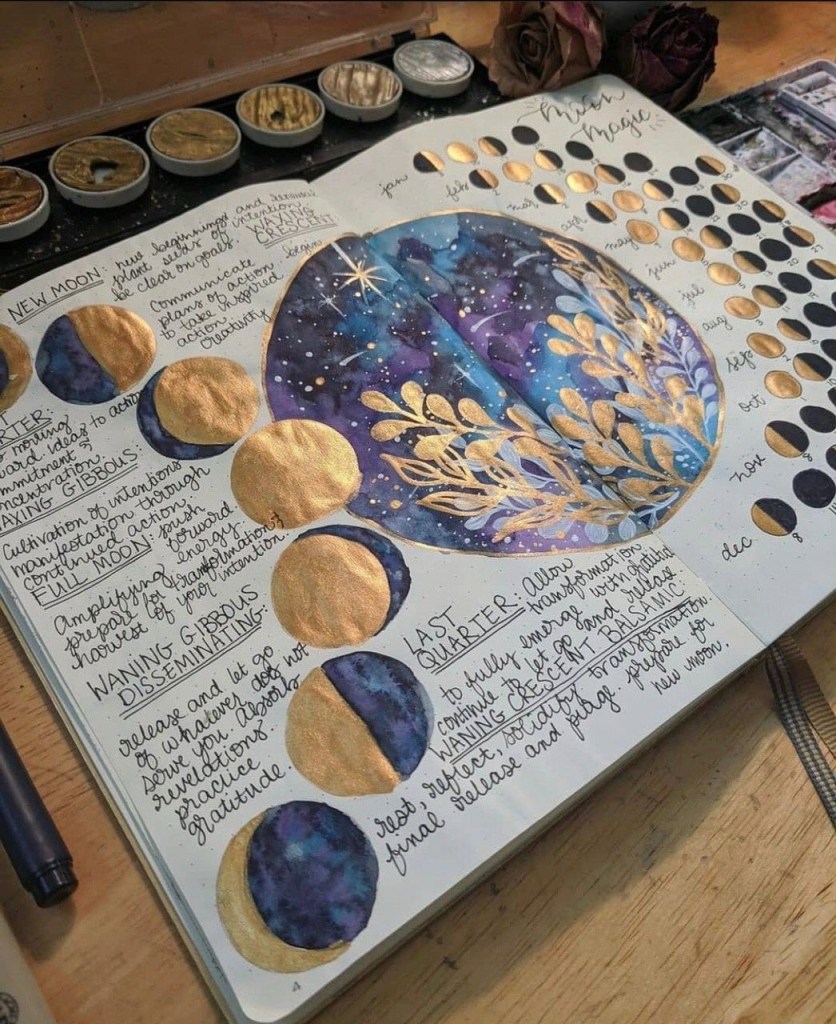 Moon
Magic
jan
feb
mar
apr
may
jun
jul
aug
sep
oct
nov
dec
8
NEW MOON: new beginnings and
plant seeds of intention.
be clear on goals.
WAXING
CRESCENT
Communicate begin
plans of action
to take inspired
action.
creativity
moving
ideas to action
WAXING GIBBOUS:
Cultivation of intentions
manifestation through
continued action.
FULL MOON: push
forward
Amplifying energy.
prepare for transformation &
harvest of your intention.
WANING GIBBOUS
DISSEMINATING:
release and let go
of whatever does not
serve you. Absorb
revelations.
practice
gratitude
LAST
QUARTER: Allow
transformation
to fully emerge with gratitude
continue to let go and release
WANING CRESCENT BALSAMIC
rest, reflect, solidify transformation.
final release and purge. prepare for
new moon.
4